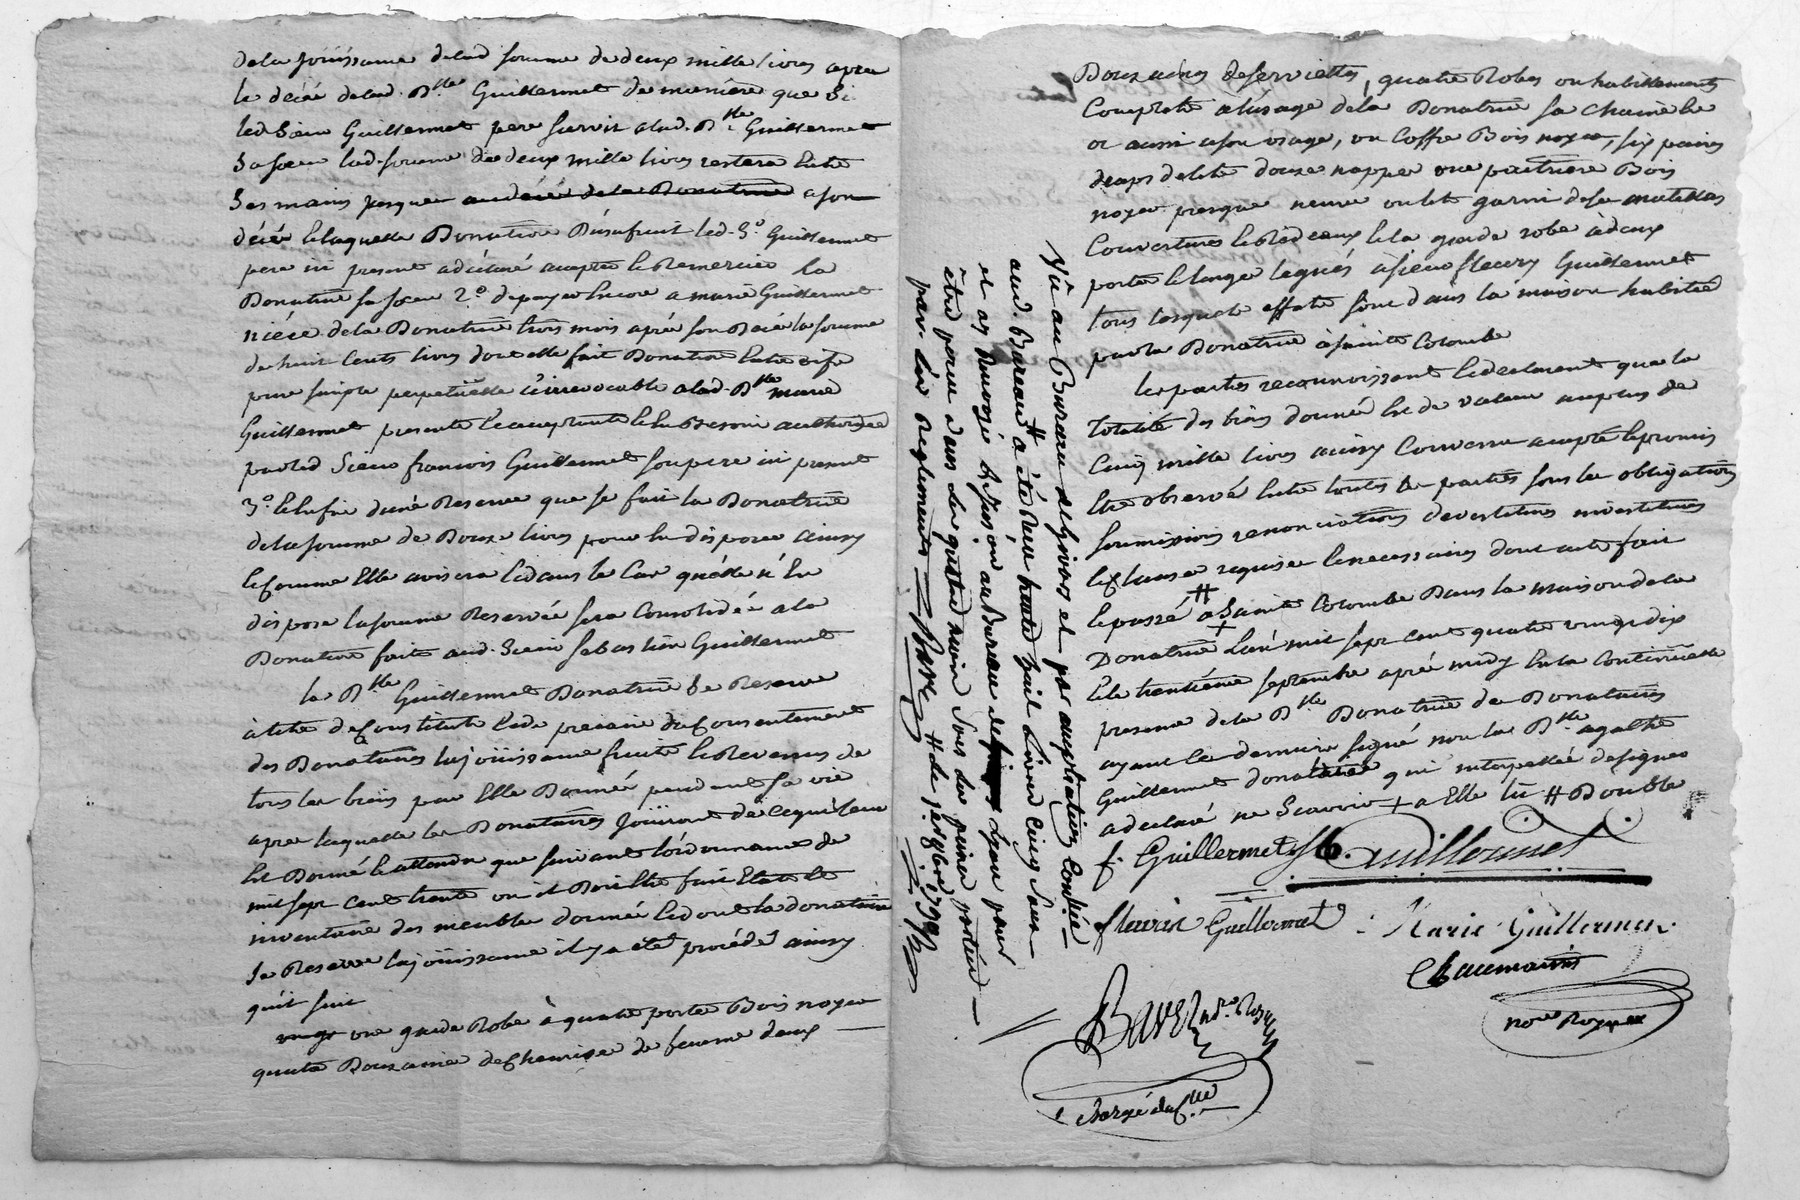 de la joüissance de lad somme de deux mille livres apres
le décés de lad. Dlle Guillermet de maniére que si
led Sieur Guillermet pere survit a lad. Dlle Guillermet
sa soeur lad. somme de deux mille livres restera entre
ses mains jusques au décés de la Donatrice a son
décés de laquelle Donation D'usufruit led. Sr. Guillermet
pere ici present a déclaré accepter & Remercier la
Donatrice sa soeur 2o. de payer encore a marie Guillermet
niéce de la Donatrice trois mois aprés son Décés la somme
de huit cents livres dont elle fait Donation entre vifs
pure simple perpetuelle & irrevocable a lad. Dlle marie
Guillermet presente & acceptante & en Besoin authorisée
par led Sieur francois Guillermet son pere ici present
3o. & enfin d'une Reserve que se fait la Donatrice
de la somme de Douze livres pour en disposer ainsy
& comme Elle avisera & dans le Cas qu'elle n'En
dispose la somme Reservée sera Consolidée a la
Donation faite aud. Sieur sabastien Guillermet
la Dlle Guillermet Donatrice Se Reserve
à titre de Constitut & de precaire du Consentement
des Donataires la joüissance fruits & Revenus de
tous les biens par Elle Donnés pendant sa vie
apres laquelle les Donataires joüiront de ce qui leur
Est Donné & attendu que suivant l'ordonnance de
mil sept cent trente un il Doit Etre fait Etat &
inventaire des meubles donnés & dont la donatrice
se Reserve la joüissance il y a été procédé ainsy
qu'il suit
une garde Robe à quatre portes Bois noyer
quatre Douzaine de Chemises de femme deux
Douzaines de serviettes, quatre Robes ou habillements
Complets à l'usage de la Donatrice sa Chaine en
or aussi a son usage, un Coffre Bois noyer, six paires
draps de lits douze nappes une paitriere Bois
noyer presque neuve un lit garni de ses matellas
Couvertures & Rideaux & la garde robe à deux
portes & linge legués à sieur fleury Guillermet
tous lesquels effets sont dans la maison habitée
par la Donatrice à sainte Colombe
les parties reconnoissant & declarent que la
totalité des biens donnés est de valeur au plus de
Cinq mille livres ainsy Convenu accepté & promis
Etre observé entre toutes les parties sous les obligations
soumissions renonciations devestitures investitures
& Clauses requises & necessaires dont acte fait
& passé # a Sainte Colombe Dans la maison de la
Donatrice L'an mil sept cent quatre vingt dix
& le trentiéme septembre aprés midy En la Continuelle
presence de la Dlle Donatrice & des Donataires
ayant les derniers signé non la Dlle agathe
Guillermet donatrice qui interpellée de signer
a déclaré ne Scavoir + a Elle lû # Double
f. Guillermet S Guillermet
fleurie Guillermet Marie Guillermet
Chaumartin
nore Royal
Vû au Bureau de Givors et par ampliation Condrieu
aud. Bureau # a été Reçu trente huit Livres Cinq Sous
et a Renvoyé L'insinuation au Bureau de Lyon pour
être perçue dans Les quatre mois Sous Les peines portées
par Les Reglements Bavet # de 1er 8bre 1790
Bavet no. Royal
Chargé du Clle